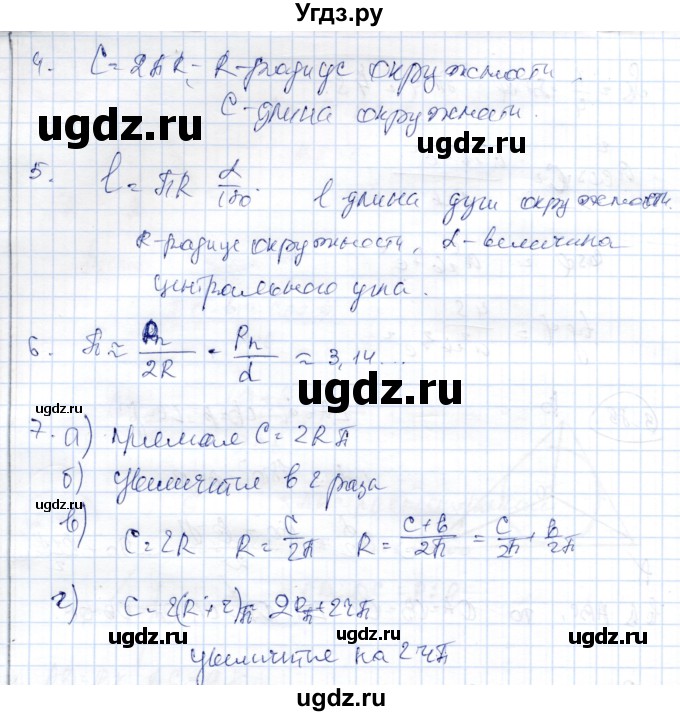 Угдз.ру
4. C = 2πR - R - радиус окружности.
C - длина окружности.
ugdz.ru
ugdz.ru
5. l = πR α/180° l длина дуги окружности.
R - радиус окружности, α - величина
центрального угла.
6. π ≈ Pn/2R = Pn/d ≈ 3,14...
ugdz.ru
ugdz.ru
7. а) прямая C = 2Rπ
б) увеличится в 2 раза
ugdz.ru
ugdz.ru
в) C = 2R R = C/2π R = C+b/2π = C/2π + b/2π
г) C = 2(R + r)π = 2Rπ + 2rπ
ugdz.ru
ugdz.ru
увеличится на 2rπ
ugdz.ru